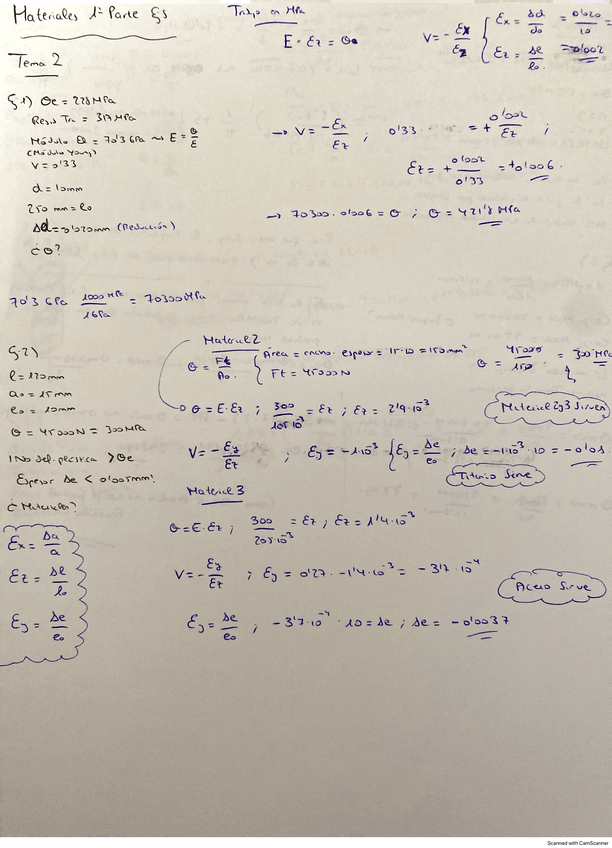 Materiales 1ª Parte Ejs
Trabajo en MPa
E · εz = σ
V = - εx / εz { εx = Δd / d0 = 0'020 / 10 =
εz = Δl / l0 = -0'002
Tema 2
Ej 1) σe = 228 MPa
Resis Tr. = 317 MPa
Módulo El = 70'3 GPa ~ E = σ / ε
(Módulo Young)
V = 0'33
d = 10mm
250 mm = l0
Δd = -0'020mm (Reducción)
¿σ?
→ V = -εx / εz ; 0'33 = + 0'002 / εz ;
εz = + 0'002 / 0'33 = +0'006.
→ 70300 · 0'006 = σ ; σ = 421'8 MPa
70'3 GPa 1000 MPa / 1 GPa = 70300 MPa
Ej 2)
l = 120mm
a0 = 15mm
e0 = 10mm
σ = 45000N = 300MPa
! No def. plástica > σe
Espesor Δe < 0'005mm!
¿Materiales?
εx = Δa / a
εz = Δl / l0
εy = Δe / e0
Material 2
σ = Ft / A0 { Área = ancho · espesor = 15·10 = 150mm²
Ft = 45000N
σ = 45000 / 150 = 300 MPa
Material 2y3 Sirven
→ σ = E · εz ; 300 / 105·10⁻³ = εz ; εz = 2'9·10⁻³
V = - εy / εz ; εy = -1·10⁻³ { εy = Δe / e0 ; Δe = -1·10⁻³ · 10 = -0'01.
Titanio Sirve
Material 3
σ = E · εz ; 300 / 205·10⁻³ = εz ; εz = 1'4·10⁻³
V = - εy / εz ; εy = 0'27 · -1'4·10⁻³ = -3'7·10⁻⁴
Acero Sirve
εy = Δe / e0 ; -3'7·10⁻⁴ · 10 = Δe ; Δe = -0'0037
Scanned with CamScanner